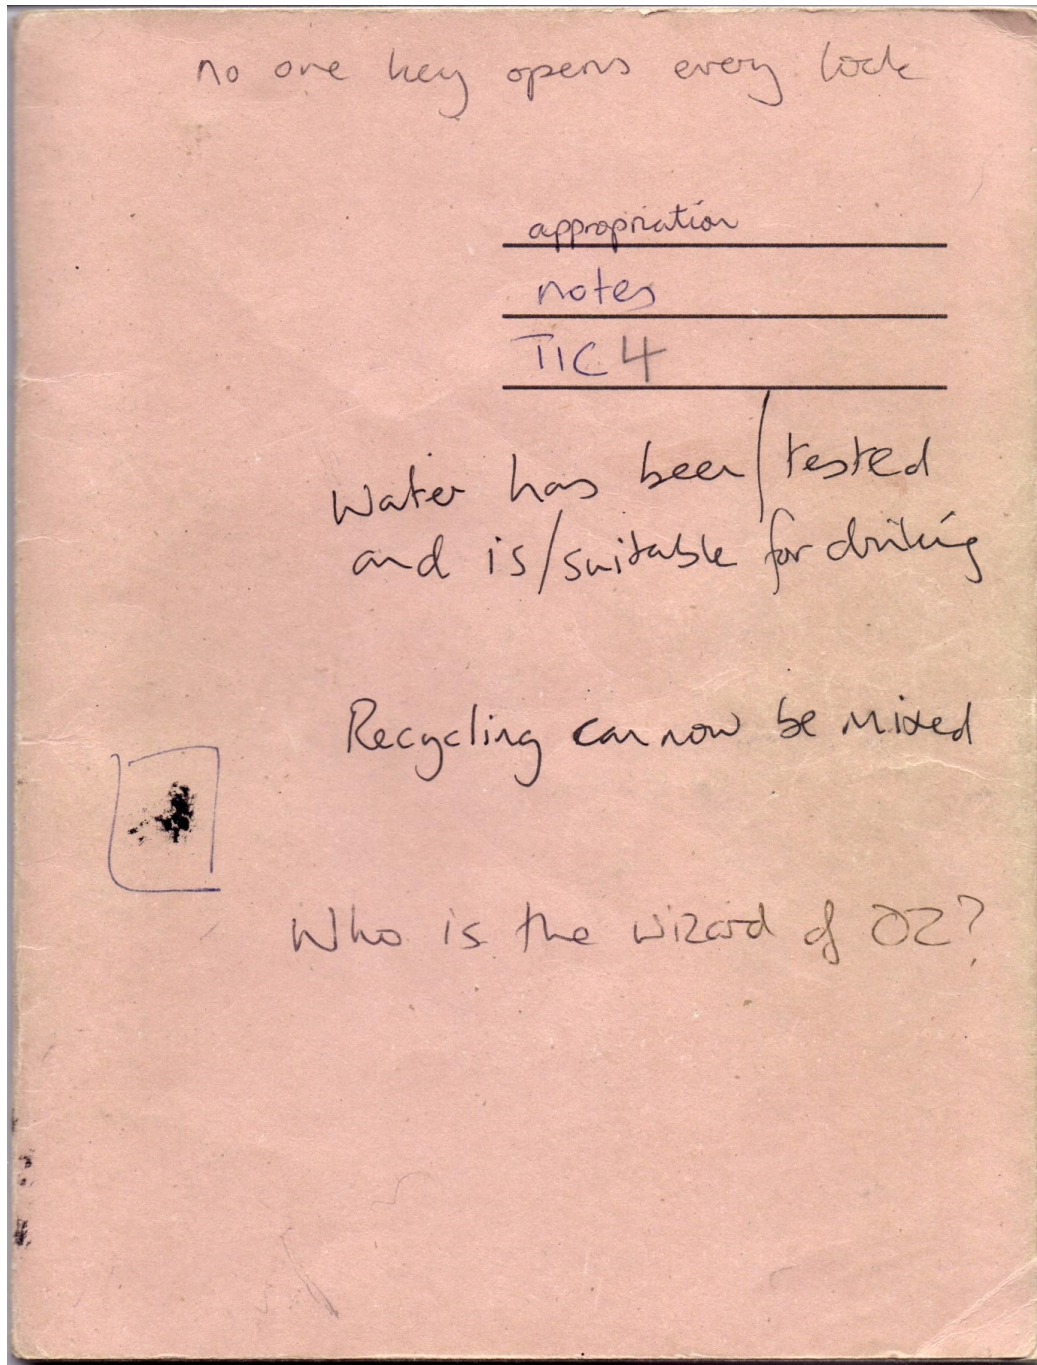 no one key opens every lock
appropriation
notes
TIC 4
Water has been/tested
and is/suitable for drinking
Recycling can now be mixed
Who is the wizard of OZ?